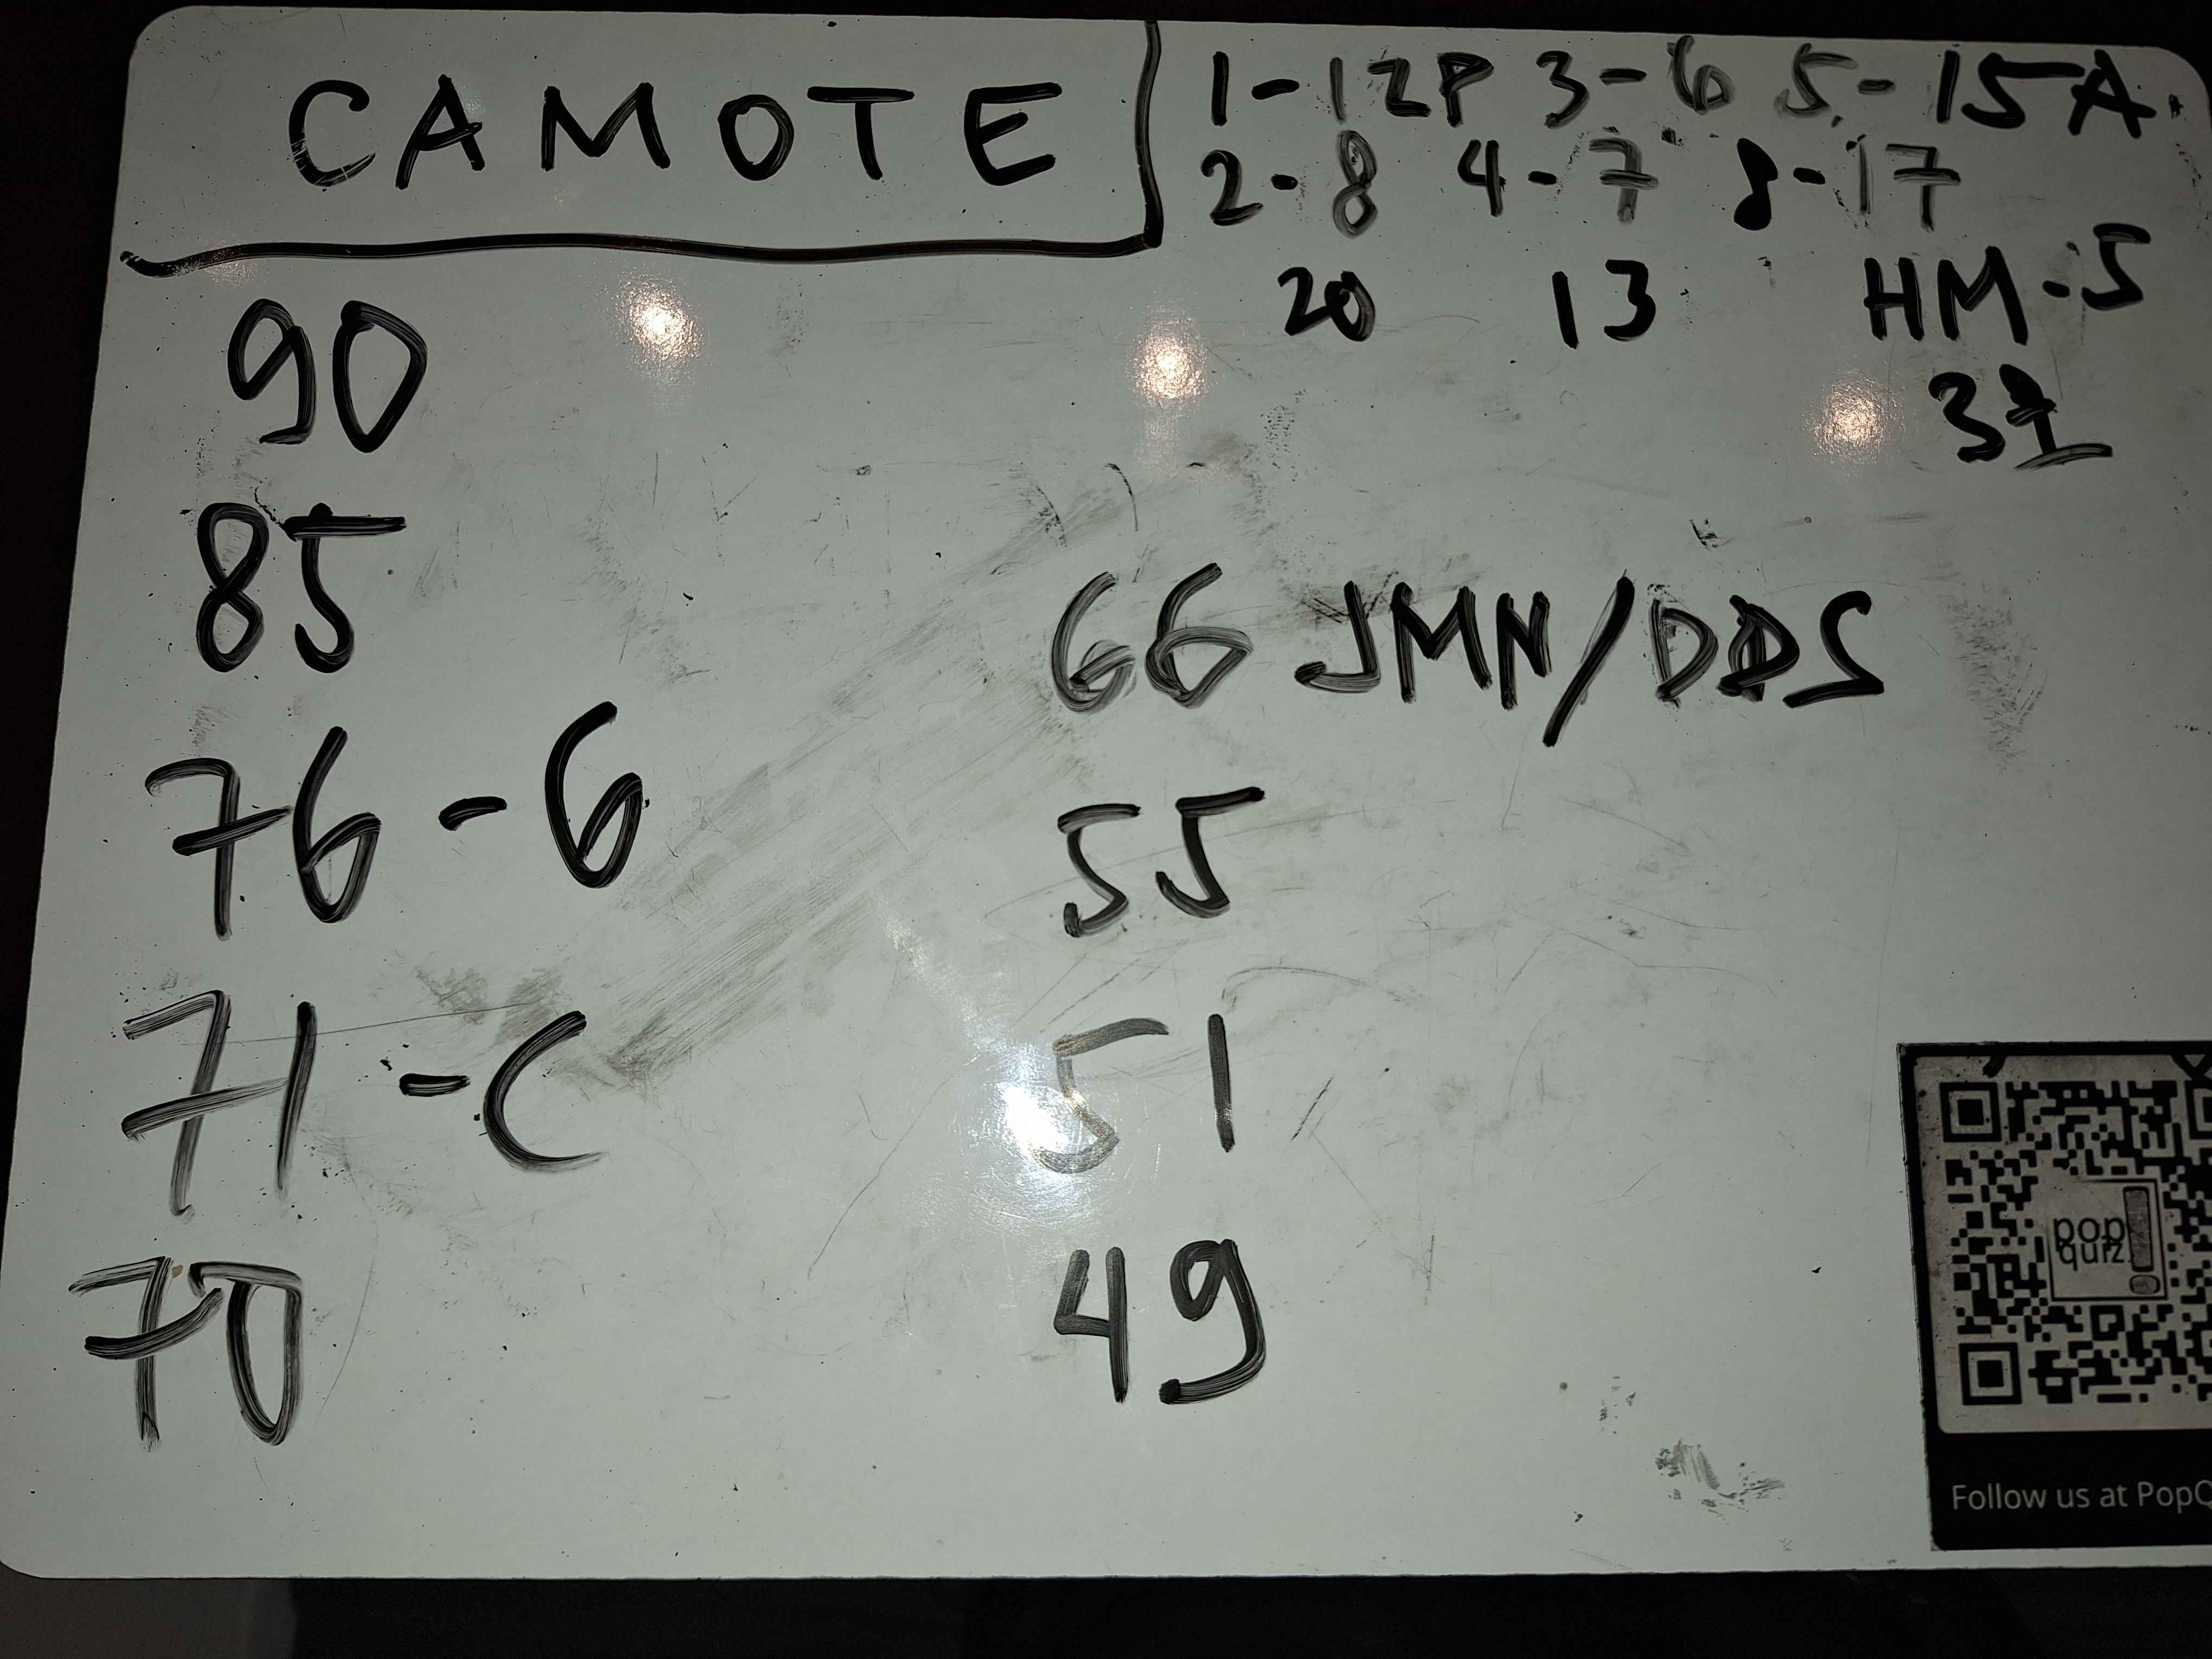 CAMOTE
1-12P 3-6 5-15A
2-8 4-7 8-17
20 13 HM-5
37
90
85
76-6
71-C
70
66 JMN/DDS
55
51
49
pop
quiz!
Follow us at PopQ